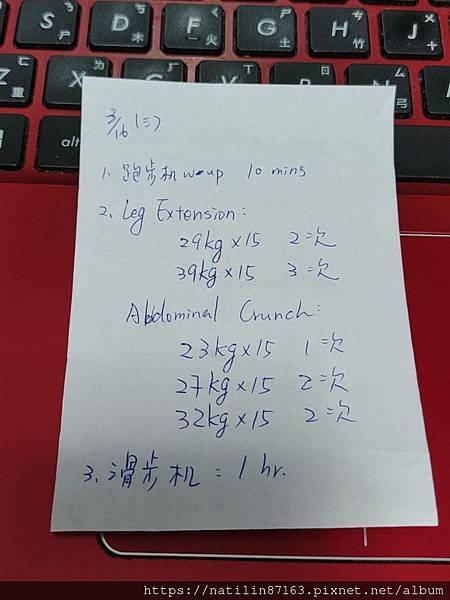 S
ㄋ
D
ㄎ
木
F
ㄑ
火
G
ㄕ
土
H
ㄘ
竹
J
ㄨ
十
Z
ㄈ
重
X
ㄌ
C
V
B
N
M
弓
alt
3/16 (三)
1. 跑步机 w-up 10 mins
2. Leg Extension:
29kg×15 2次
39kg×15 3次
Abdominal Crunch:
23kg×15 1次
27kg×15 2次
32kg×15 2次
3. 滑步机: 1 hr.
https://natilin87163.pixnet.net/album